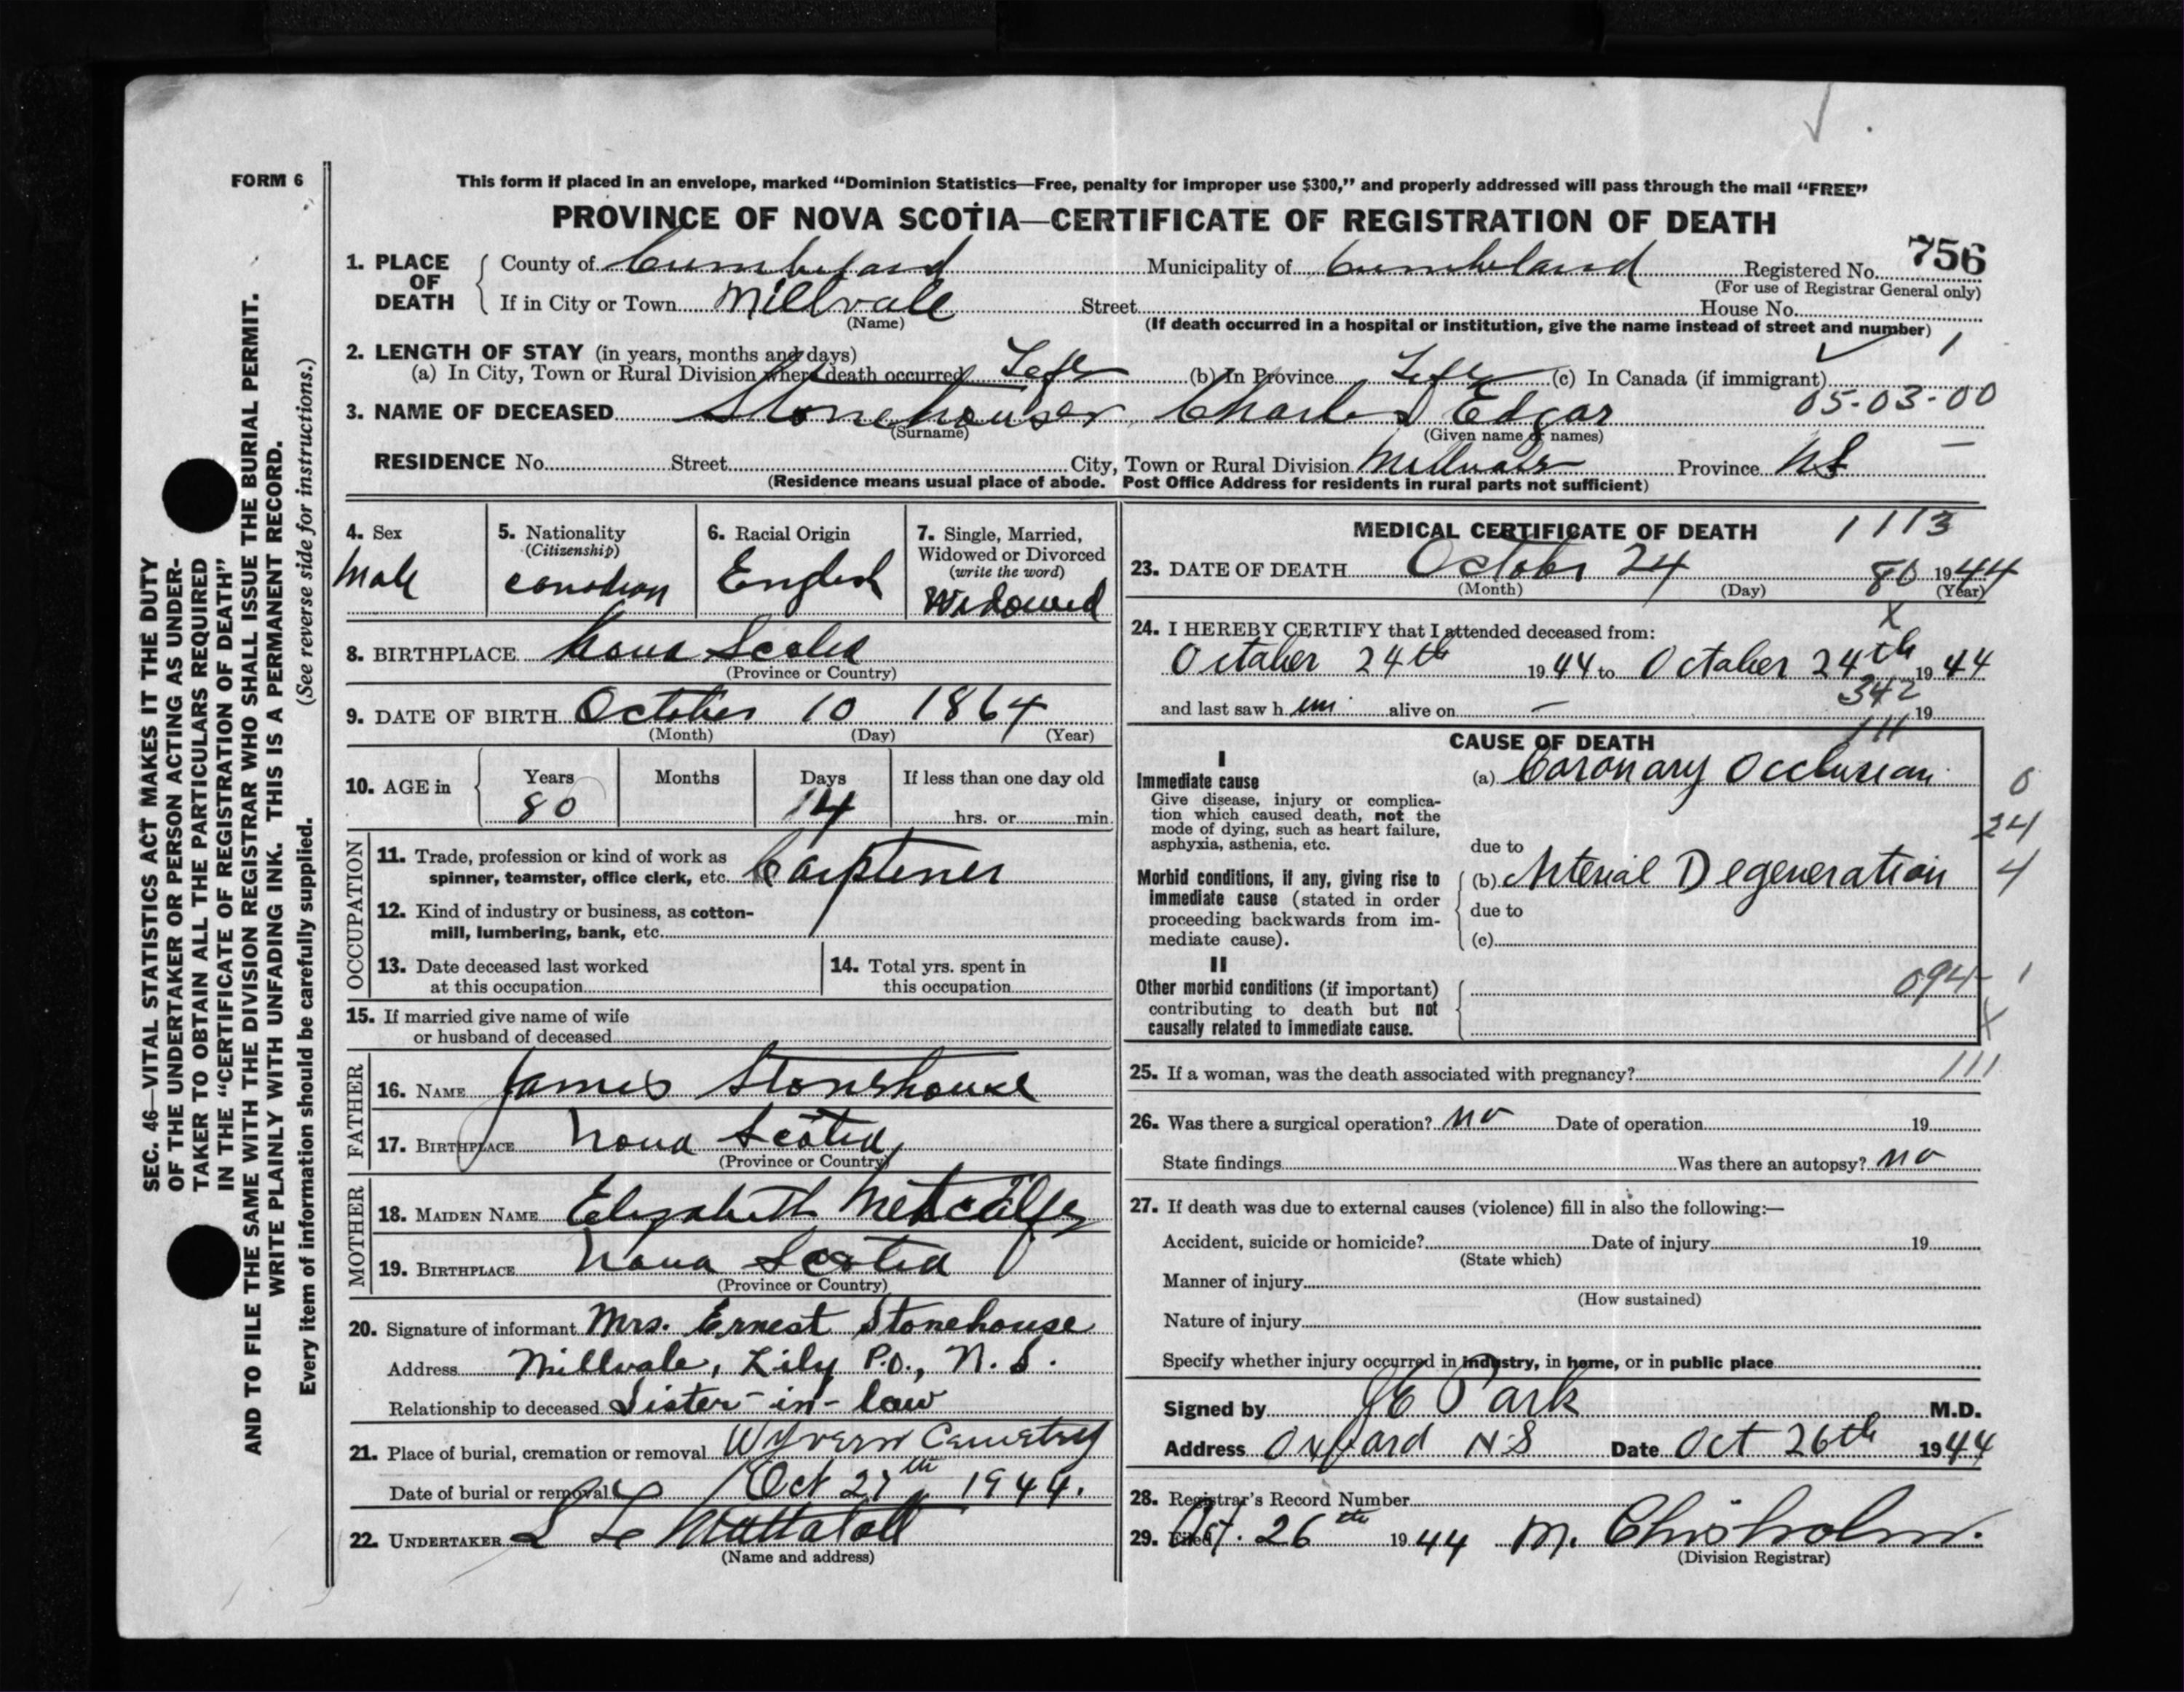 FORM 6
This form if placed in an envelope, marked “Dominion Statistics—Free, penalty for improper use $300,” and properly addressed will pass through the mail “FREE”
PROVINCE OF NOVA SCOTIA—CERTIFICATE OF REGISTRATION OF DEATH
756
1. PLACE OF DEATH County of Cumberland Municipality of Cumberland Registered No.
(For use of Registrar General only)
If in City or Town Millvale Street House No.
(Name) (If death occurred in a hospital or institution, give the name instead of street and number)
1
2. LENGTH OF STAY (in years, months and days)
(a) In City, Town or Rural Division where death occurred Life (b) In Province Life (c) In Canada (if immigrant)
05-03-00
3. NAME OF DECEASED Stonehouse Charles Edgar
(Surname) (Given name or names)
RESIDENCE No. Street City, Town or Rural Division Millvale Province NS
(Residence means usual place of abode. Post Office Address for residents in rural parts not sufficient)
4. Sex
Male
5. Nationality
(Citizenship)
Canadian
6. Racial Origin
English
7. Single, Married,
Widowed or Divorced
(write the word)
Widowed
8. BIRTHPLACE Nova Scotia
(Province or Country)
9. DATE OF BIRTH October 10 1864
(Month) (Day) (Year)
10. AGE in Years Months Days If less than one day old
80 14 hrs. or min.
OCCUPATION
11. Trade, profession or kind of work as
spinner, teamster, office clerk, etc. Carptener
12. Kind of industry or business, as cotton-
mill, lumbering, bank, etc.
13. Date deceased last worked
at this occupation
14. Total yrs. spent in
this occupation
15. If married give name of wife
or husband of deceased
FATHER
16. NAME James Stonehouse
17. BIRTHPLACE Nova Scotia
(Province or Country)
MOTHER
18. MAIDEN NAME Elizabeth Metcalfe
19. BIRTHPLACE Nova Scotia
(Province or Country)
20. Signature of informant Mrs. Ernest Stonehouse
Address Millvale, Lily P.O., N.S.
Relationship to deceased Sister-in-law
21. Place of burial, cremation or removal Wyvern Cemetry
Date of burial or removal Oct 27th 1944.
22. UNDERTAKER
(Name and address)
MEDICAL CERTIFICATE OF DEATH 1113
23. DATE OF DEATH October 24 80 1944
(Month) (Day) (Year)
X
24. I HEREBY CERTIFY that I attended deceased from:
October 24th 1944 to October 24th 1944
342
and last saw h im alive on — 19
111
CAUSE OF DEATH
I
Immediate cause (a) Coronary Occlusion
Give disease, injury or complica-
tion which caused death, not the
mode of dying, such as heart failure,
asphyxia, asthenia, etc.
0
24
4
due to
Morbid conditions, if any, giving rise to
immediate cause (stated in order
proceeding backwards from im-
mediate cause).
(b) Arterial Degeneration
due to
(c)
II
Other morbid conditions (if important)
contributing to death but not
causally related to immediate cause.
094 1
X
25. If a woman, was the death associated with pregnancy? 111
26. Was there a surgical operation? no Date of operation 19
State findings Was there an autopsy? no
27. If death was due to external causes (violence) fill in also the following:—
Accident, suicide or homicide? Date of injury 19
(State which)
Manner of injury
(How sustained)
Nature of injury
Specify whether injury occurred in industry, in home, or in public place
Signed by Park M.D.
Address Oxford N-S Date Oct 26th 1944
28. Registrar's Record Number
29. Filed Oct. 26th 1944 M. Chisholm.
(Division Registrar)
SEC. 46—VITAL STATISTICS ACT MAKES IT THE DUTY
OF THE UNDERTAKER OR PERSON ACTING AS UNDER-
TAKER TO OBTAIN ALL THE PARTICULARS REQUIRED
IN THE “CERTIFICATE OF REGISTRATION OF DEATH”
AND TO FILE THE SAME WITH THE DIVISION REGISTRAR WHO SHALL ISSUE THE BURIAL PERMIT.
WRITE PLAINLY WITH UNFADING INK. THIS IS A PERMANENT RECORD.
Every item of information should be carefully supplied. (See reverse side for instructions.)